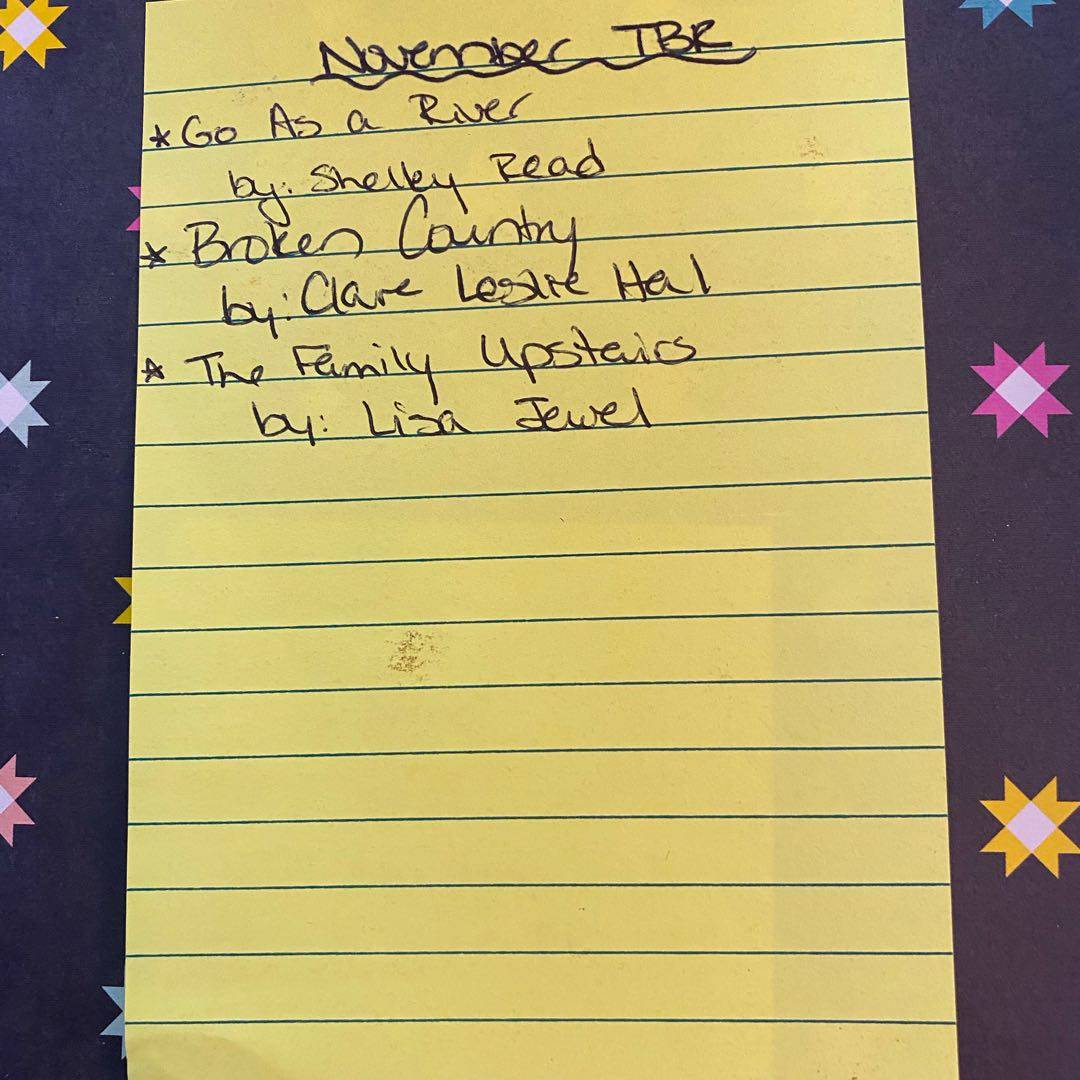 November TBR
* Go As a River
by: Shelley Read
* Broken Country
by: Clare Leslie Hal
* The Family Upstairs
by: Lisa Jewel